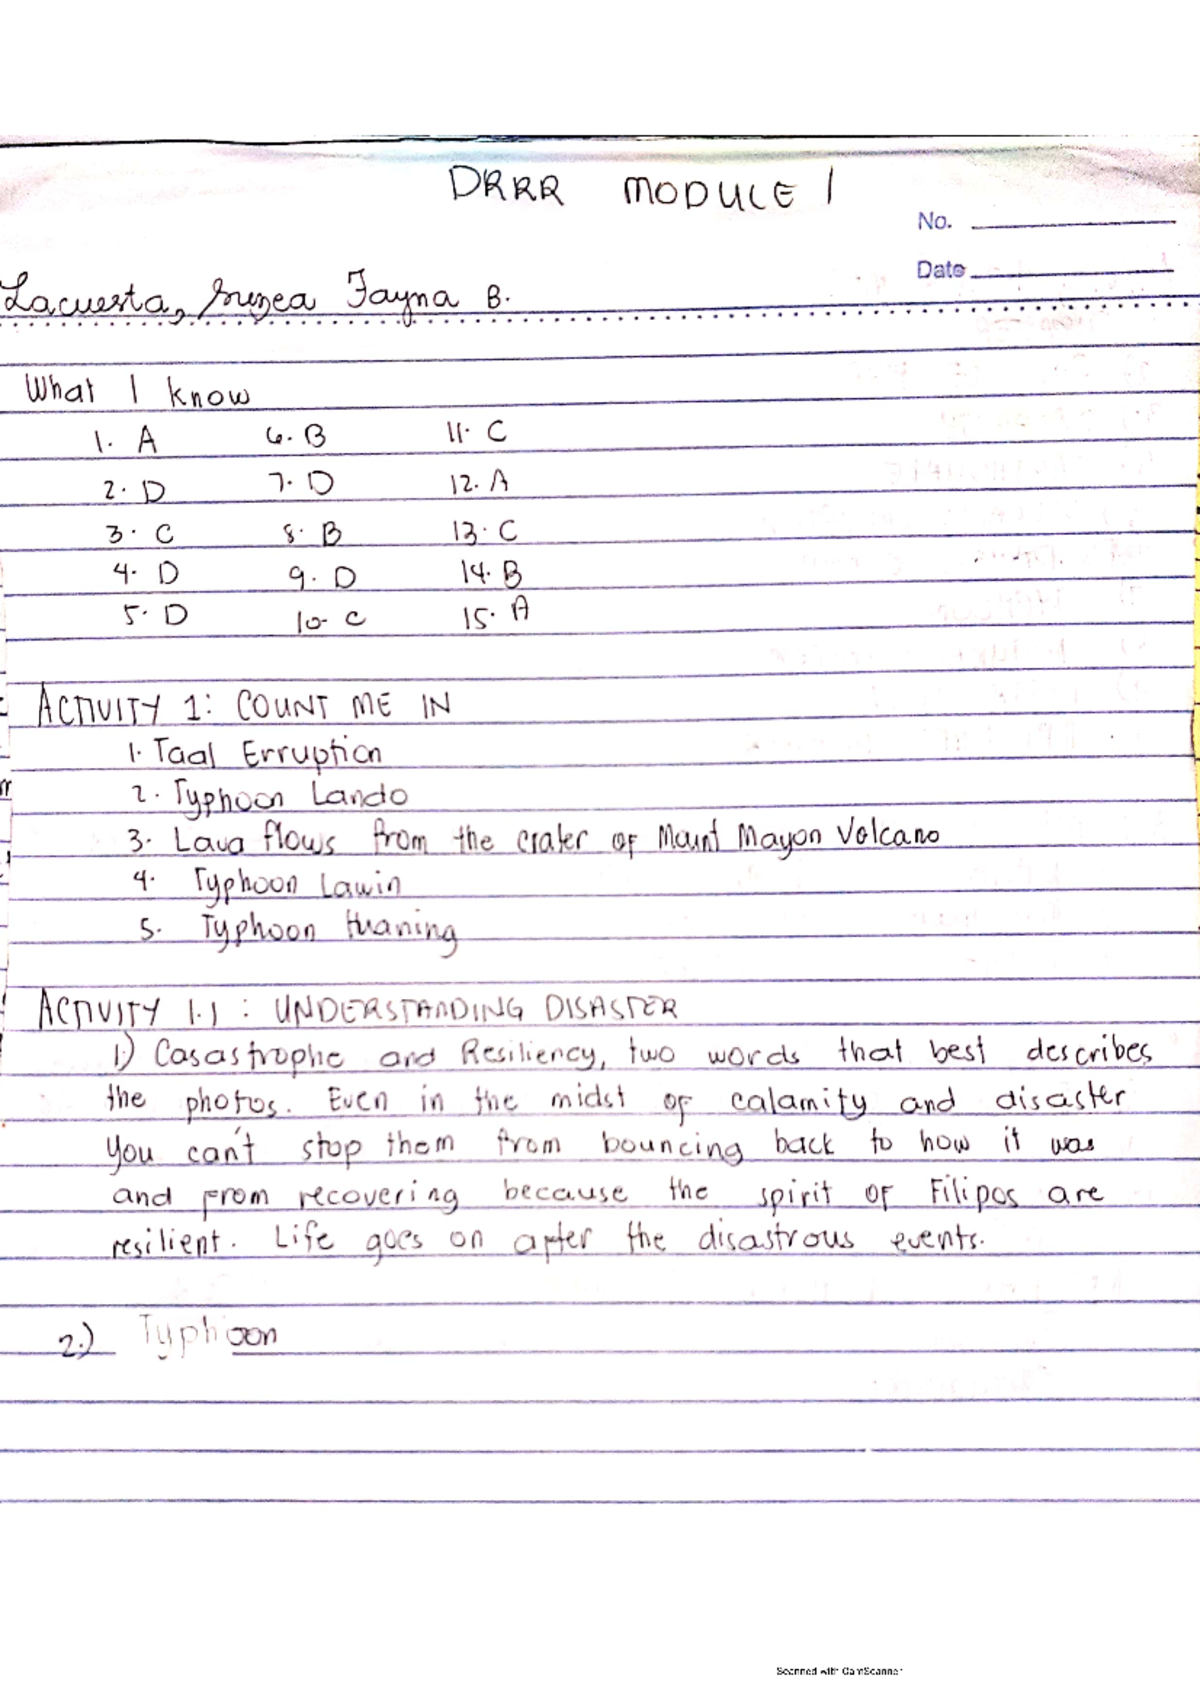 DRRR MODULE 1
No.
Date
Lacuesta, Fayna B.
What I know
1. A 6. B 11. C
2. D 7. D 12. A
3. C 8. B 13. C
4. D 9. D 14. B
5. D 10. C 15. A
ACTIVITY 1: COUNT ME IN
1. Taal Erruption
2. Typhoon Lando
3. Lava flows from the crater of Mount Mayon Volcano
4. Typhoon Lawin
5. Typhoon Huaning
ACTIVITY 1.1 : UNDERSTANDING DISASTER
1.) Casastrophe and Resiliency, two words that best describes
the photos. Even in the midst of calamity and disaster
you can't stop them from bouncing back to how it was
and from recovering because the spirit of Filipos are
resilient. Life goes on after the disastrous events.
2.) Typhoon
Scanned with CamScanner